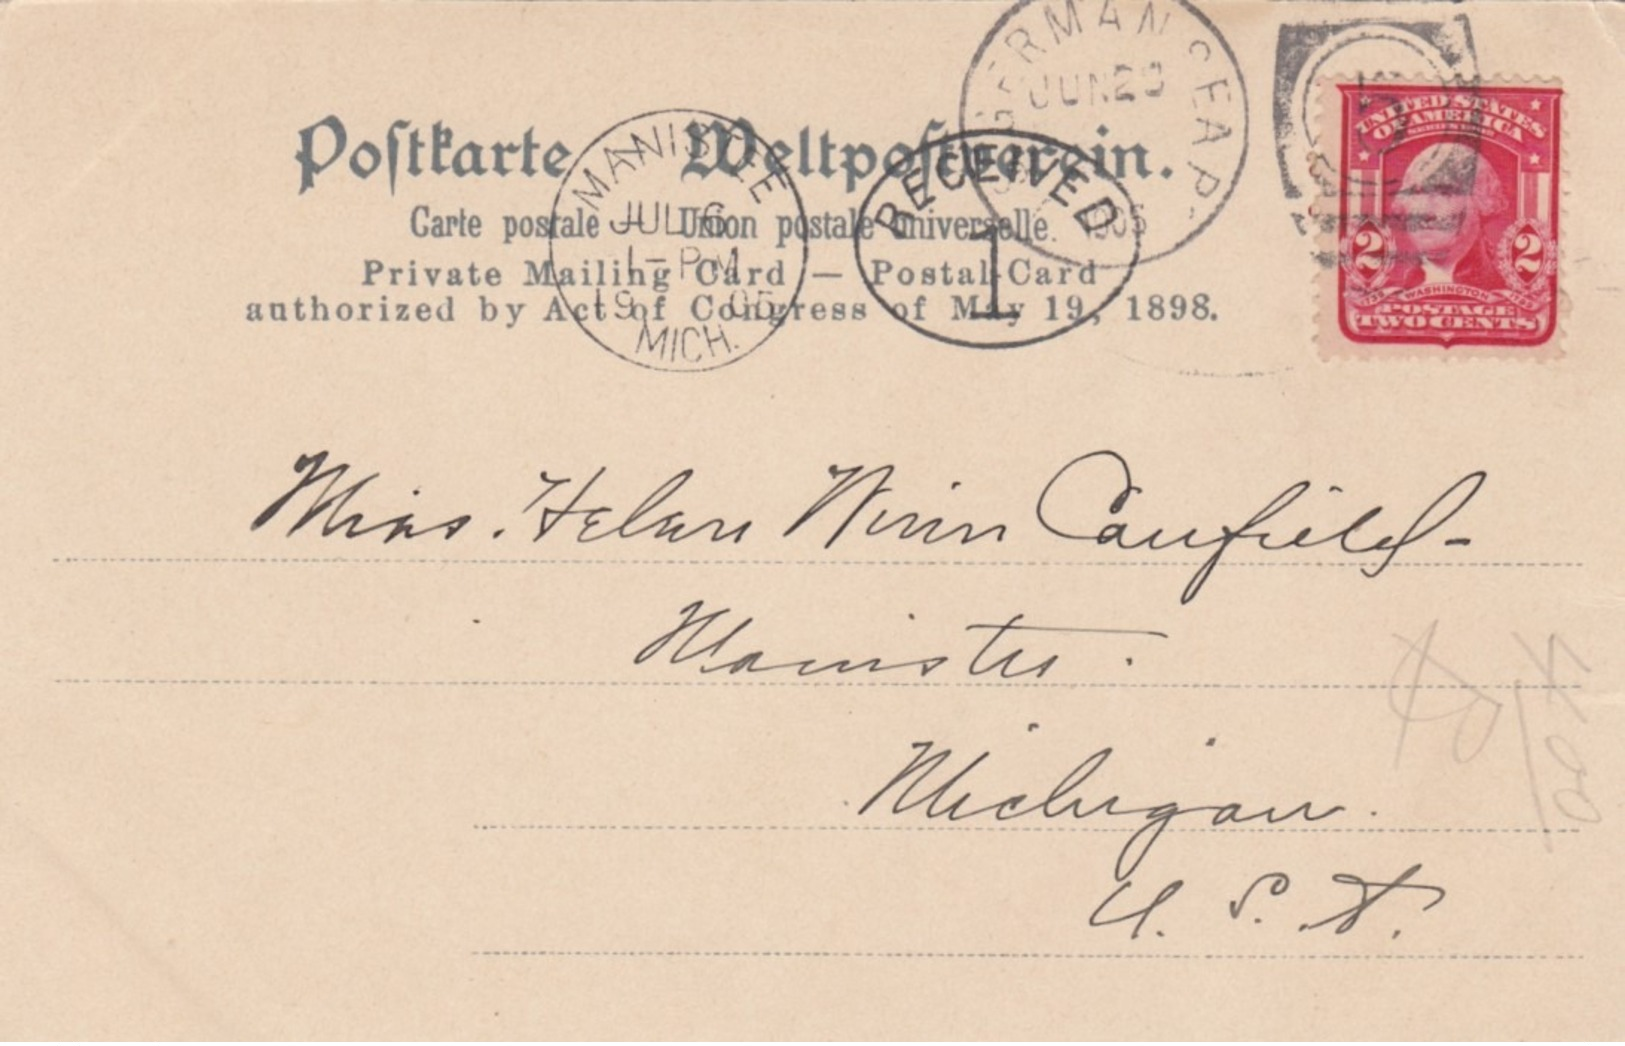 Postkarte — Weltpostverein.
Carte postale — Union postale universelle.
Private Mailing Card — Postal Card
authorized by Act of Congress of May 19, 1898.
MANISTEE
JUL 6
1 - PM
19 05
MICH.
RECEIVED
1
GERMAN SEAP.
JUN 29
1905
UNITED STATES
OF AMERICA
2 2
1732 WASHINGTON 1799
POSTAGE
TWO CENTS
Miss. Helen Ninn Caufield -
Manistee.
Michigan.
U. S. A.
4/00